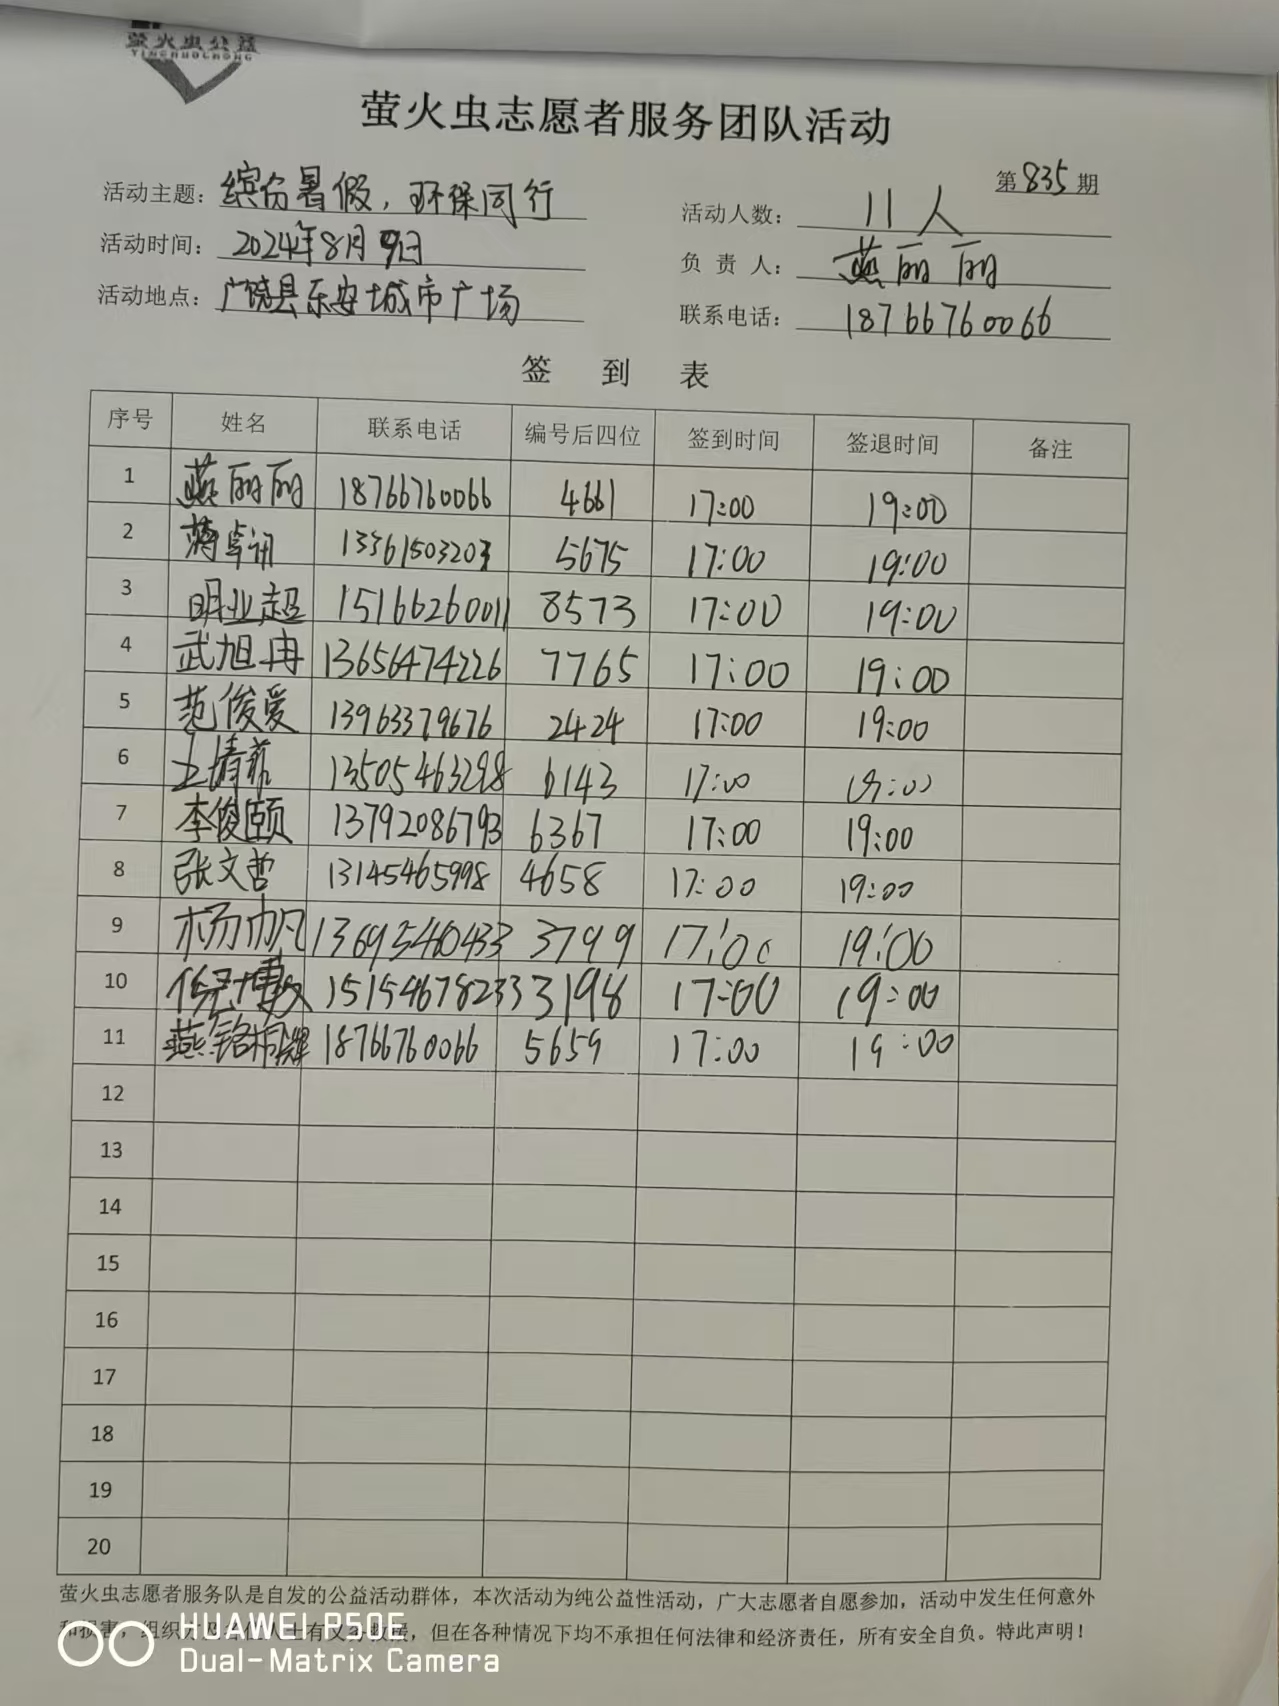 萤火虫公益
YINGHUOCHONG
萤火虫志愿者服务团队活动
第835期
活动主题：缤纷暑假，环保同行
活动人数：11人
活动时间：2024年8月9日
负责人：燕丽丽
活动地点：广饶县乐安城市广场
联系电话：18766760066
签到表
序号 姓名 联系电话 编号后四位 签到时间 签退时间 备注
1 燕丽丽 18766760066 4661 17:00 19:00
2 蒋卓讯 13361503203 5675 17:00 19:00
3 明业超 15166260011 8573 17:00 19:00
4 武旭冉 13656474226 7765 17:00 19:00
5 范俊爱 13963379676 2424 17:00 19:00
6 王靖菲 13505463298 6143 17:00 19:00
7 李俊颐 13792086793 6367 17:00 19:00
8 张文哲 13145465998 4658 17:00 19:00
9 杨帅凡 13695460433 3799 17:00 19:00
10 倪博文 15154678233 3198 17:00 19:00
11 燕铭 18766760066 5659 17:00 19:00
12
13
14
15
16
17
18
19
20
萤火虫志愿者服务队是自发的公益活动群体，本次活动为纯公益性活动，广大志愿者自愿参加，活动中发生任何意外
和损害，组织 有义务救援，但在各种情况下均不承担任何法律和经济责任，所有安全自负。特此声明！
HUAWEI P50E
Dual-Matrix Camera